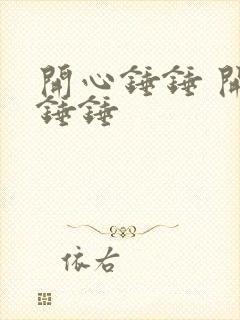 開心錘錘 開
錘錘
依右